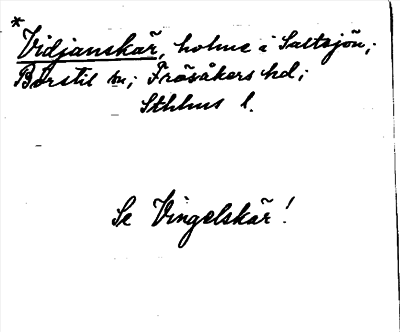 *
Vidjanskär, holme i Saltsjön;
Börstil sn; Frösåkers hd;
Sthlms l.
Se Vingelskär!